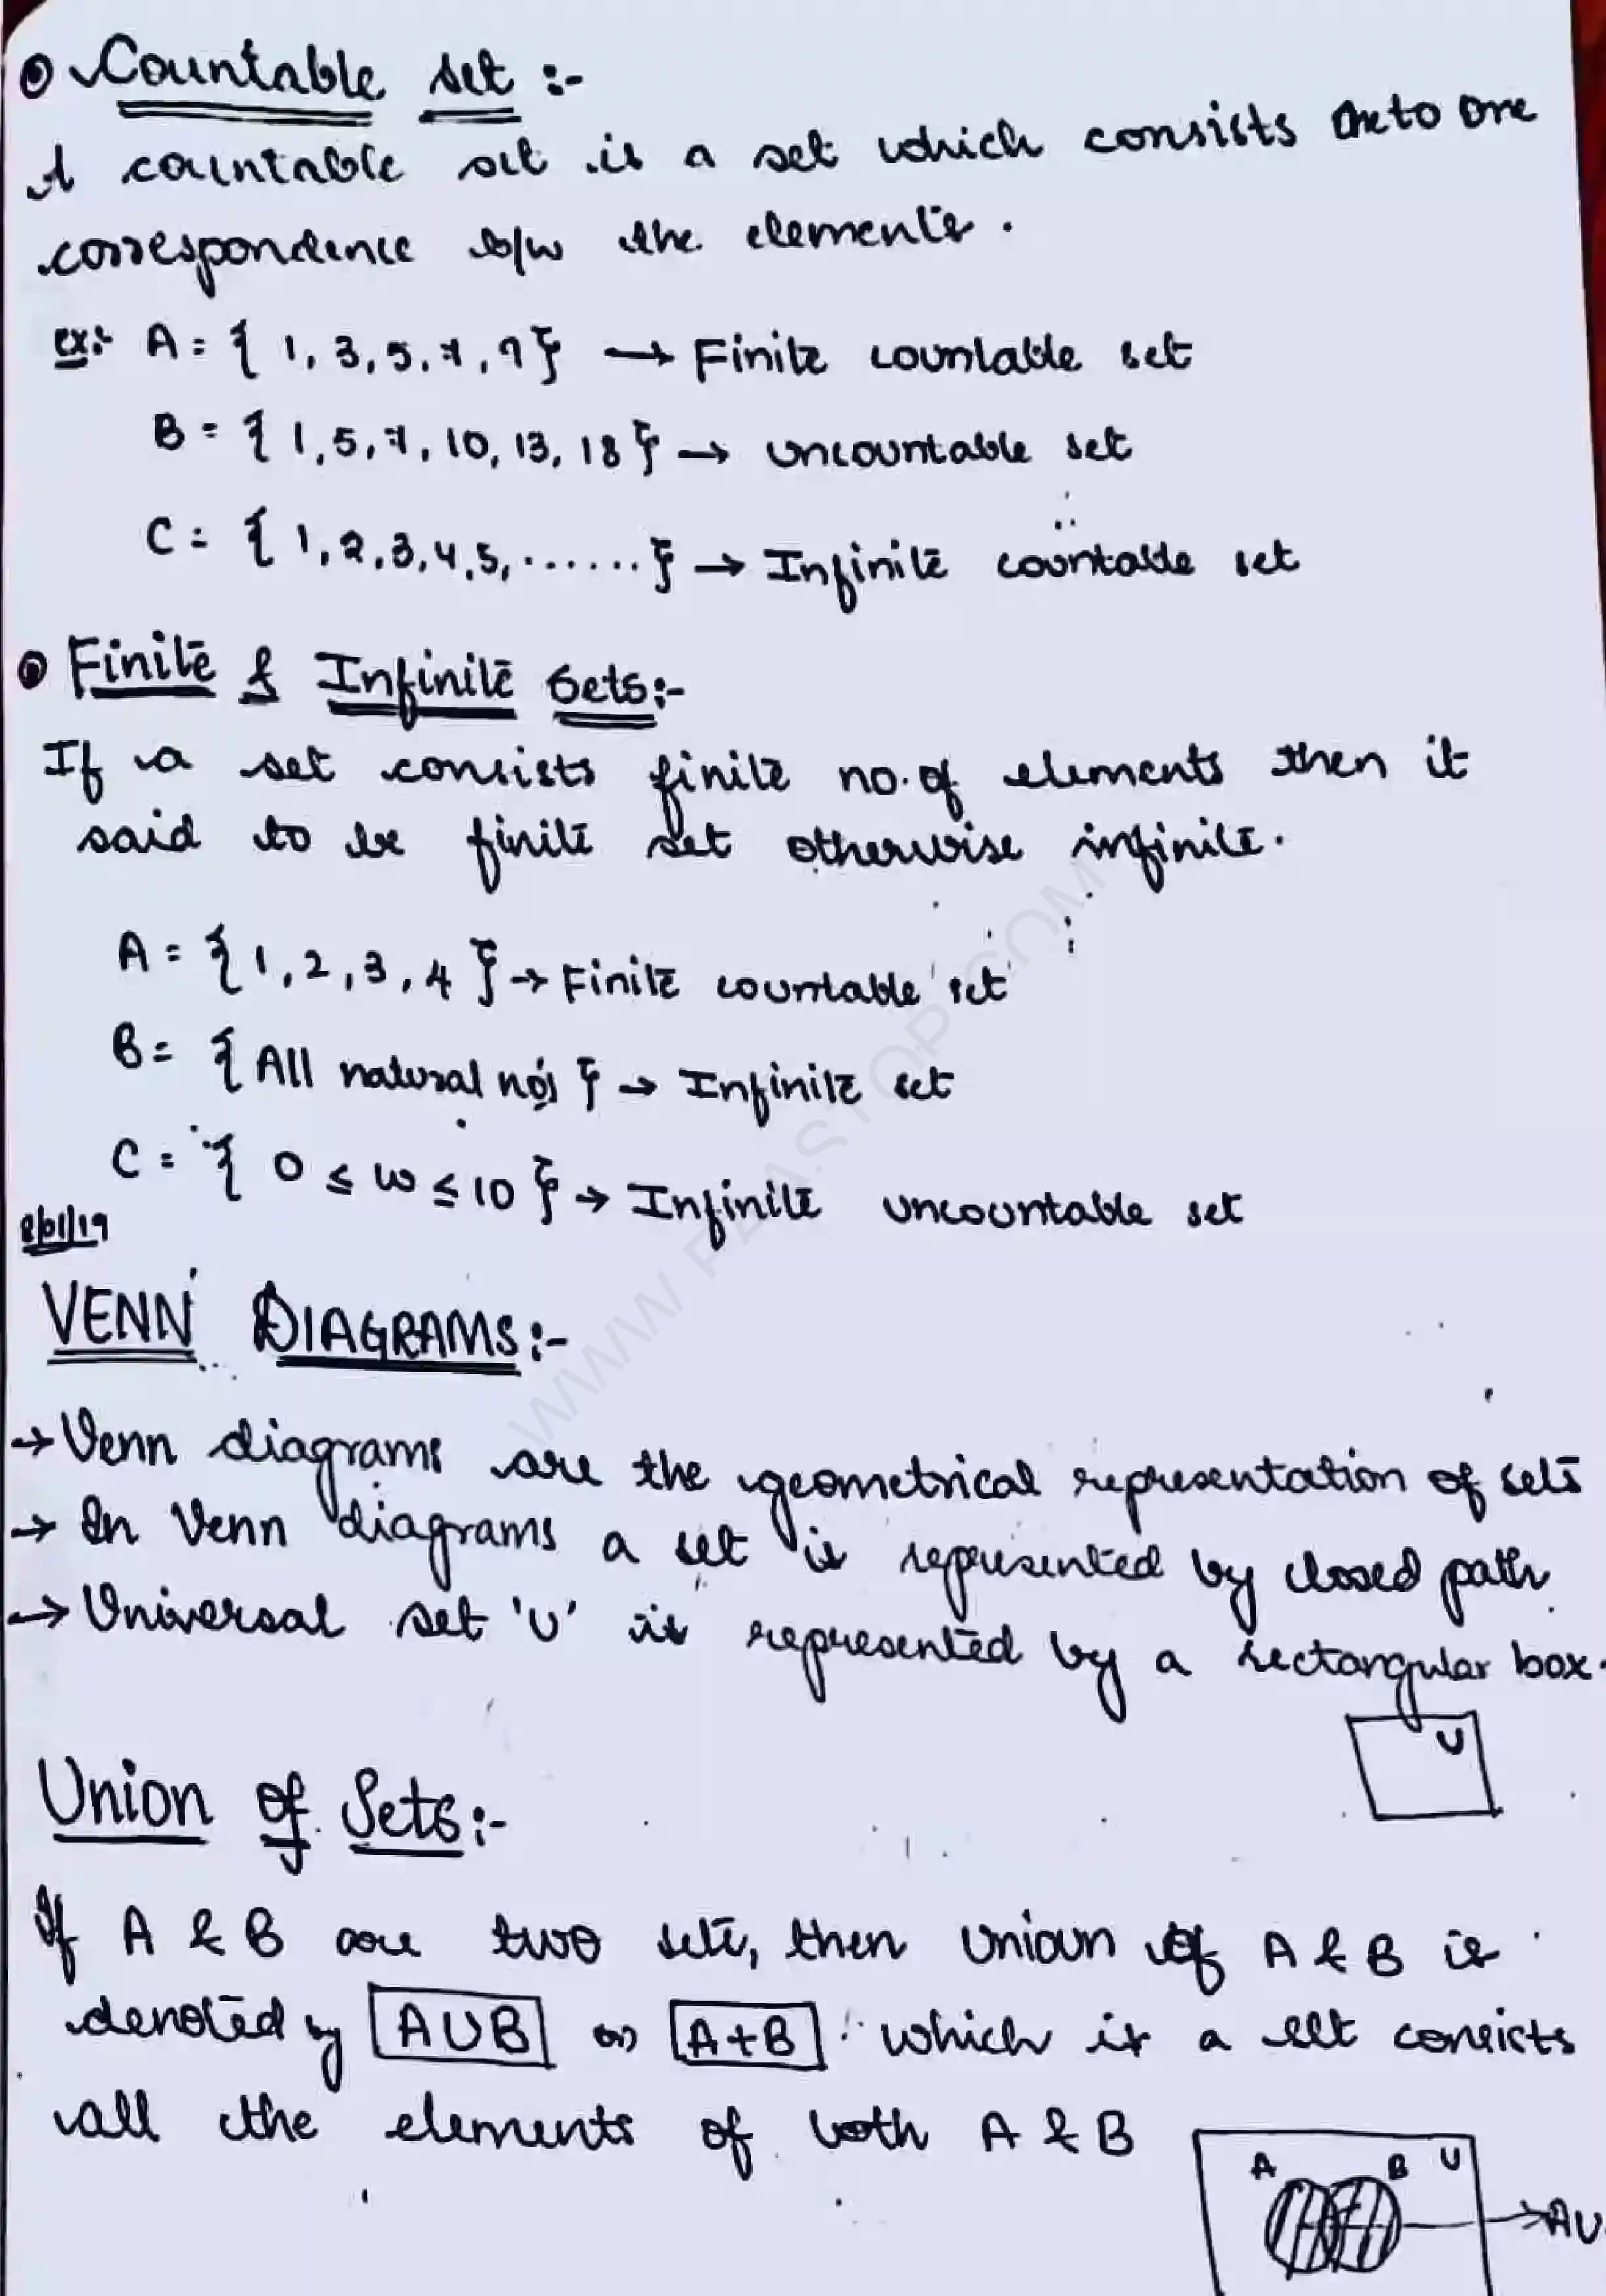 Countable set :-
A countable set is a set which consists One to One
correspondence b/w the elements.
ex:- A = { 1, 3, 5, 7, 9} → Finite countable set
B = { 1, 5, 7, 10, 13, 18 } → uncountable set
C = { 1, 2, 3, 4, 5, ...... } → Infinite countable set
Finite & Infinite Sets:-
If a set consists finite no. of elements then it
said to be finite set otherwise infinite.
A = { 1, 2, 3, 4 } → Finite countable set
B = { All natural no's } → Infinite set
C = { 0 ≤ w ≤ 10 } → Infinite uncountable set
8/01/19
VENN DIAGRAMS:-
→ Venn diagrams are the geometrical representation of sets
→ In Venn diagrams a set is represented by closed path.
→ Universal set 'U' is represented by a rectangular box.
U
Union of Sets:-
If A & B are two sets, then Union of A & B is
denoted by A∪B or A+B which is a set consists
all the elements of both A & B
A B U
→ AU